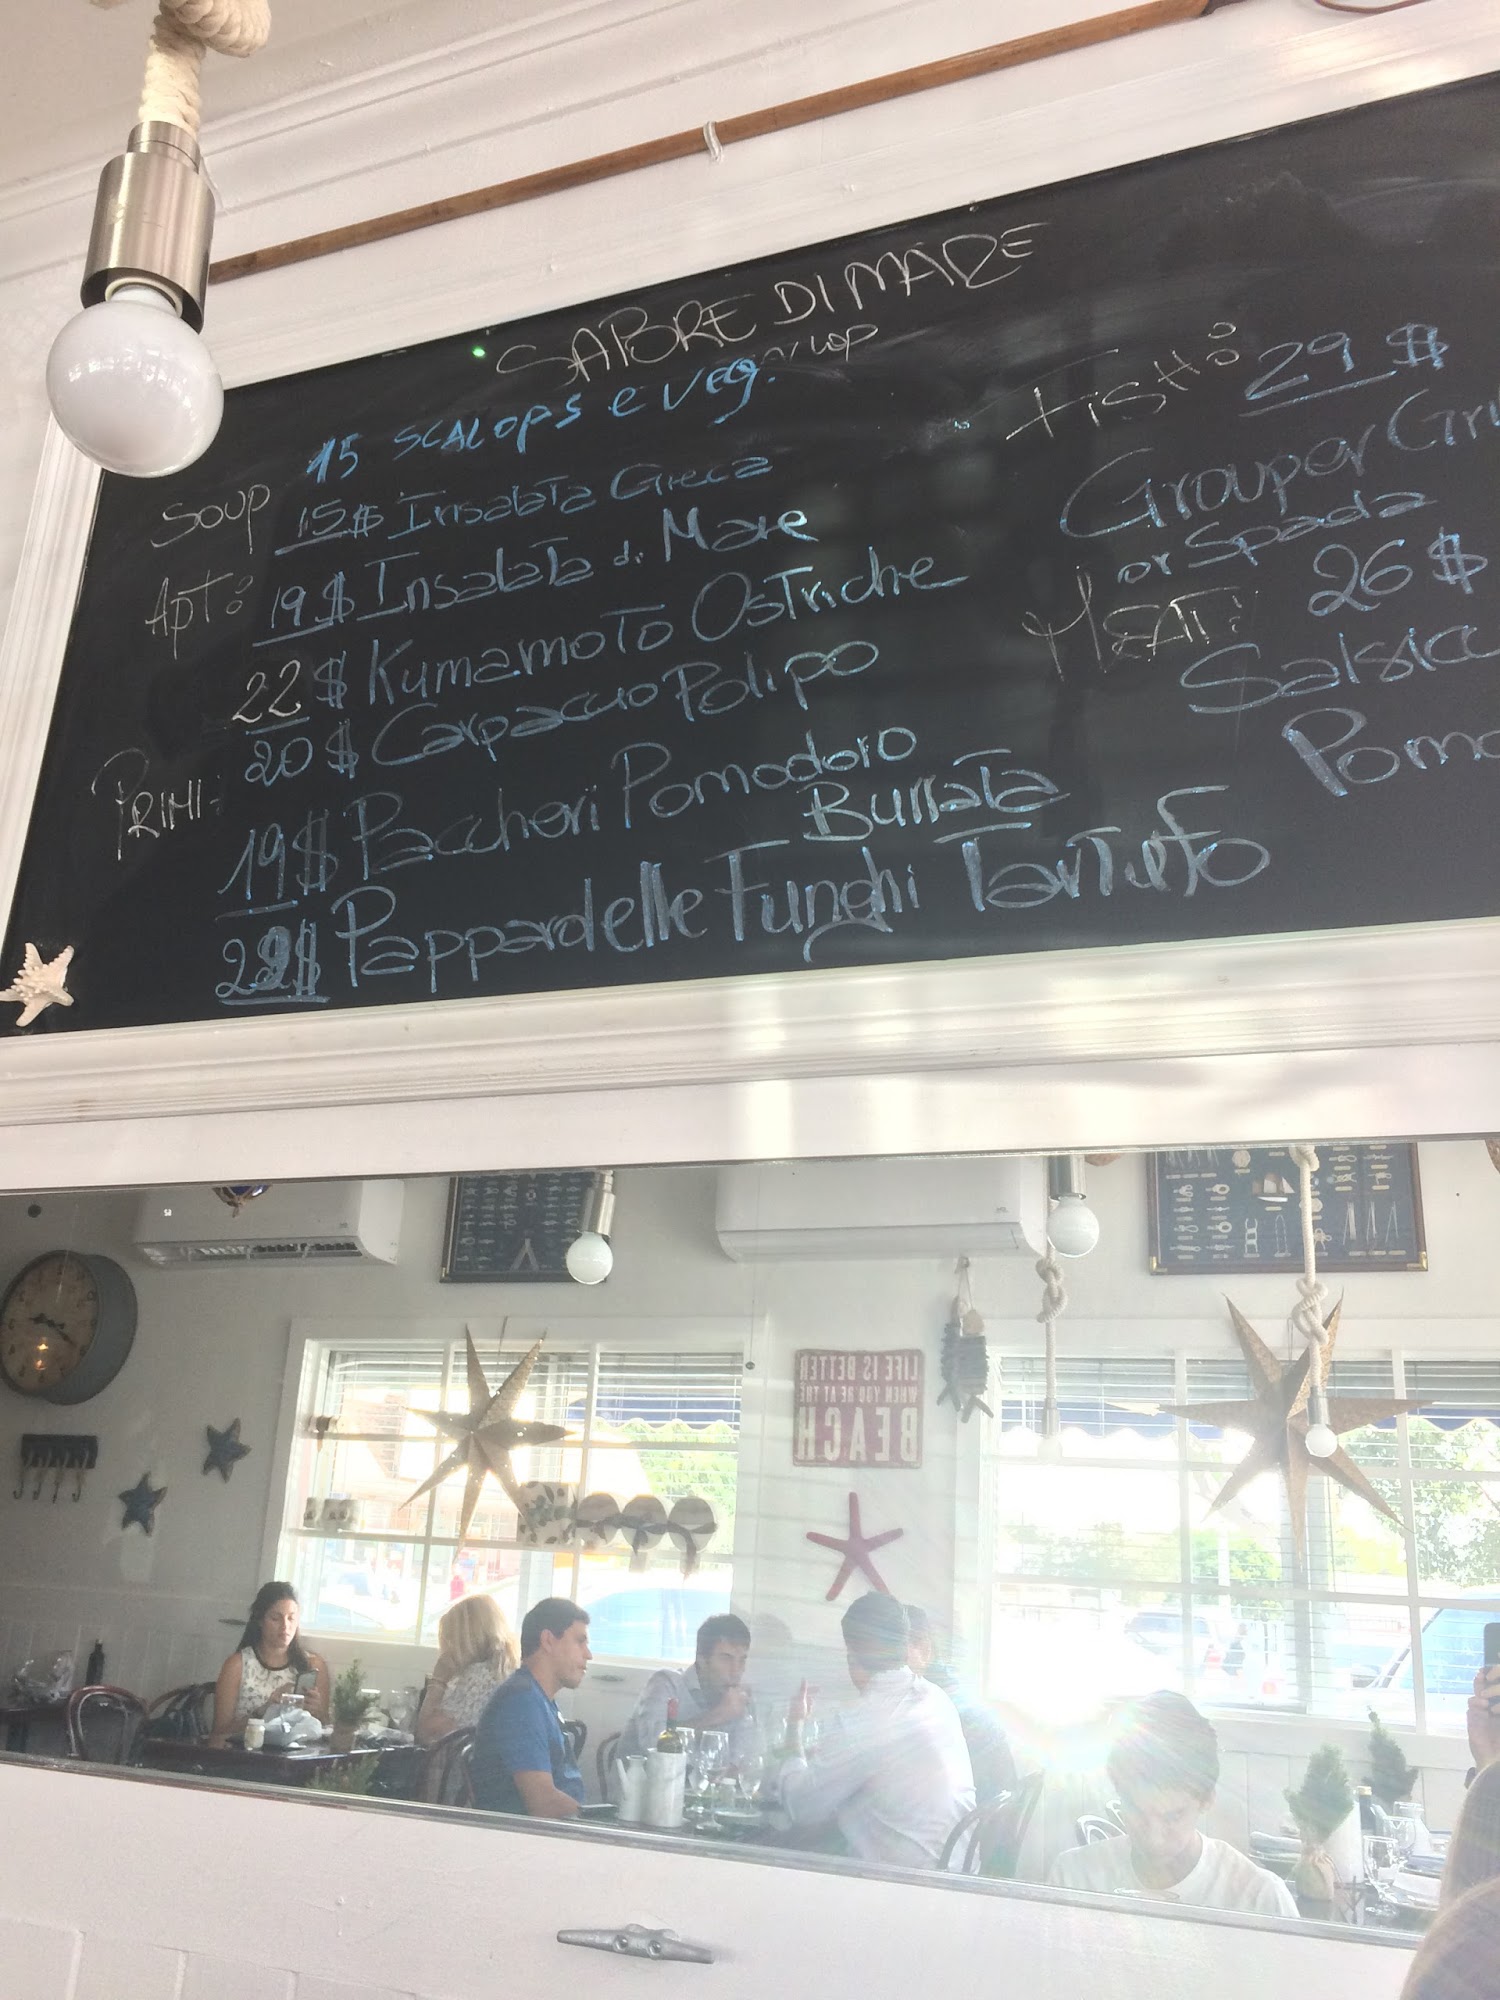 SAPORE DI MARE
Soup 15 SCALOPS e veg.
15$ Insalata Greca
Apt: 19$ Insalata di Mare
22$ Kumamoto Ostriche
20$ Carpaccio Polipo
PRIMI: 19$ Paccheri Pomodoro
Burrata
22$ Pappardelle Funghi Tartufo
FISH: 29$
Grouper Gri
or Spada
MEAT: 26$
Salsicc
Pomo
LIFE IS BETTER
WHEN YOU'RE AT THE
BEACH